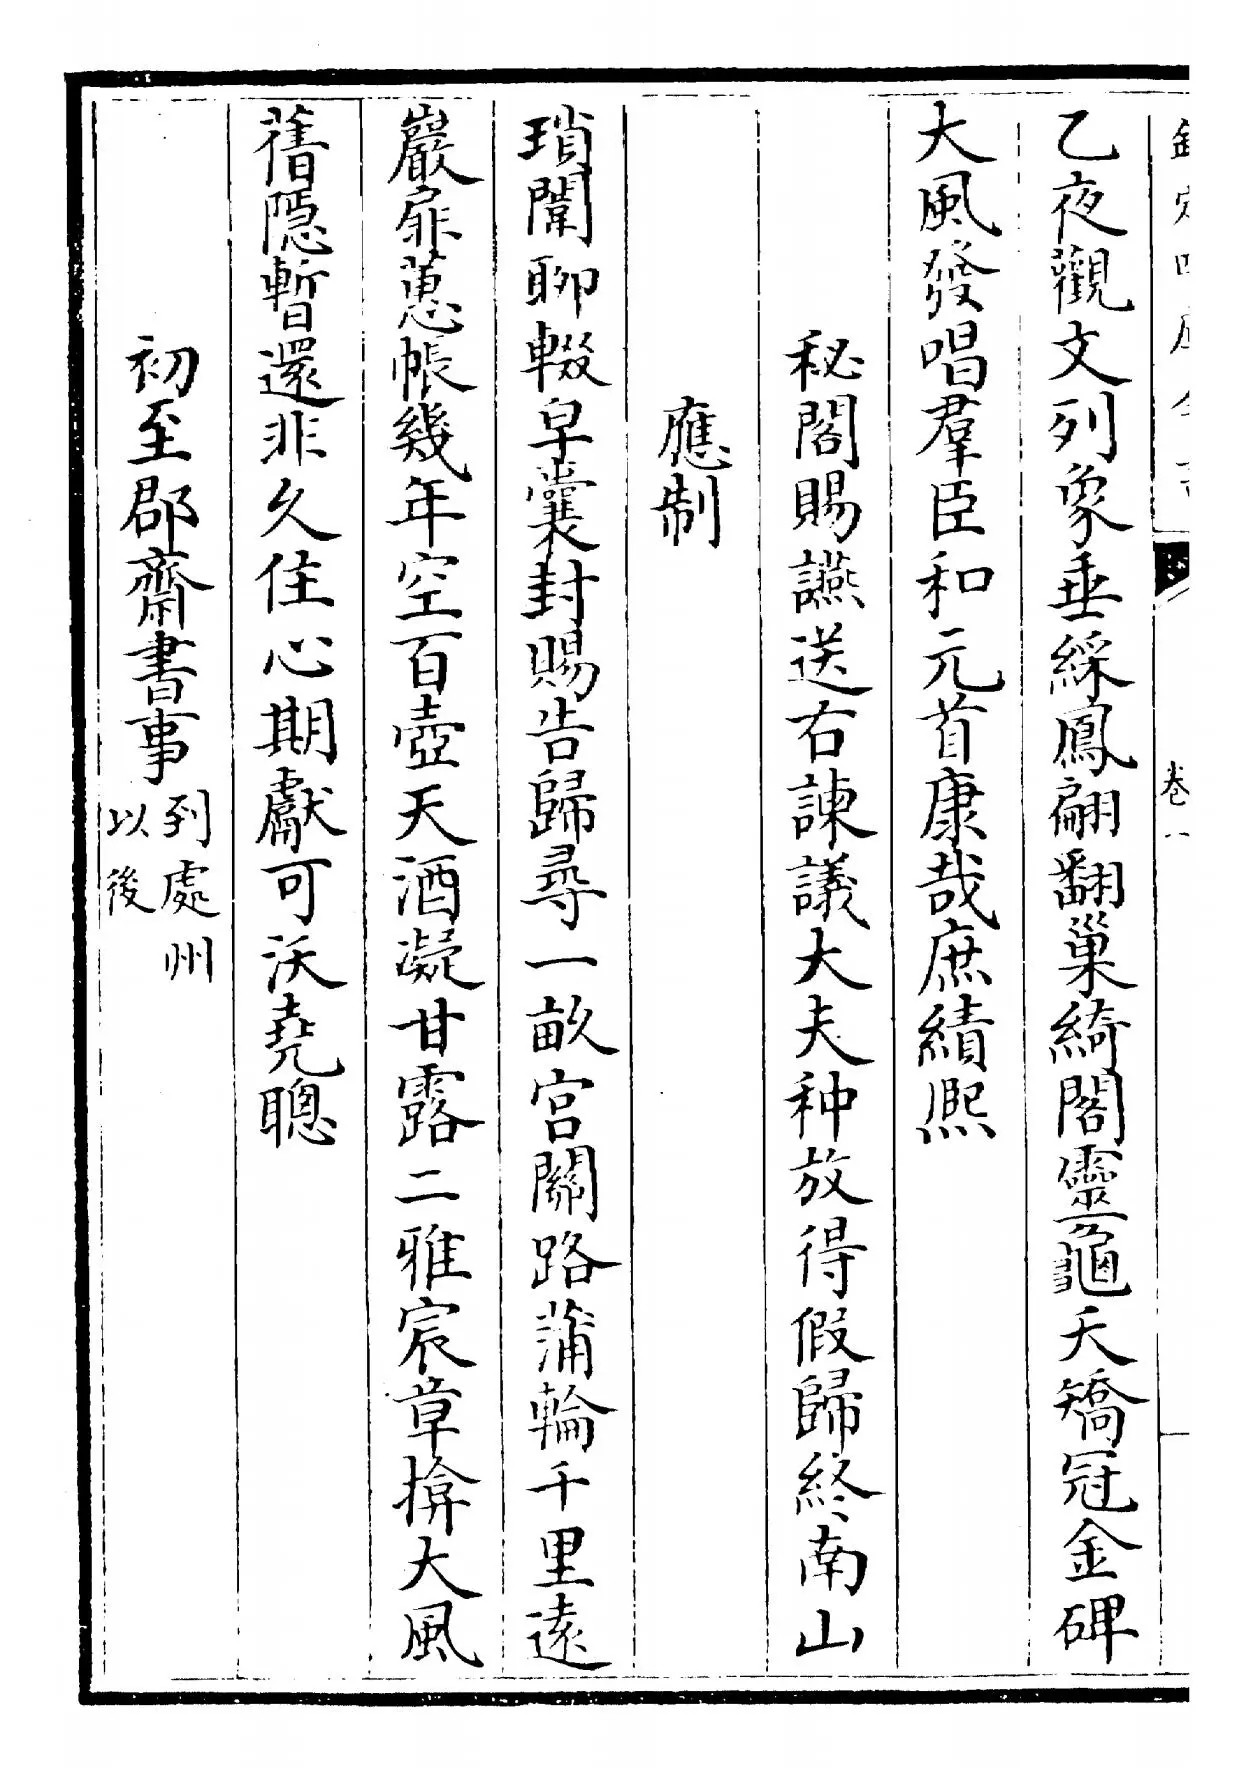 乙夜觀文列象垂綵鳳翩翻巢綺閣靈龜夭矯冠金碑
大風發唱羣臣和元首康哉庶績熈
秘閣賜讌送右諫議大夫种放得假歸終南山
應制
瑣闈聊輟皁囊封賜告歸尋一畝宫關路蒲輪千里遠
巖扉蕙帳幾年空百壺天酒凝甘露二雅宸章揜大風
舊隠暫還非久住心期獻可沃堯聰
初至郡齋書事到處州以後